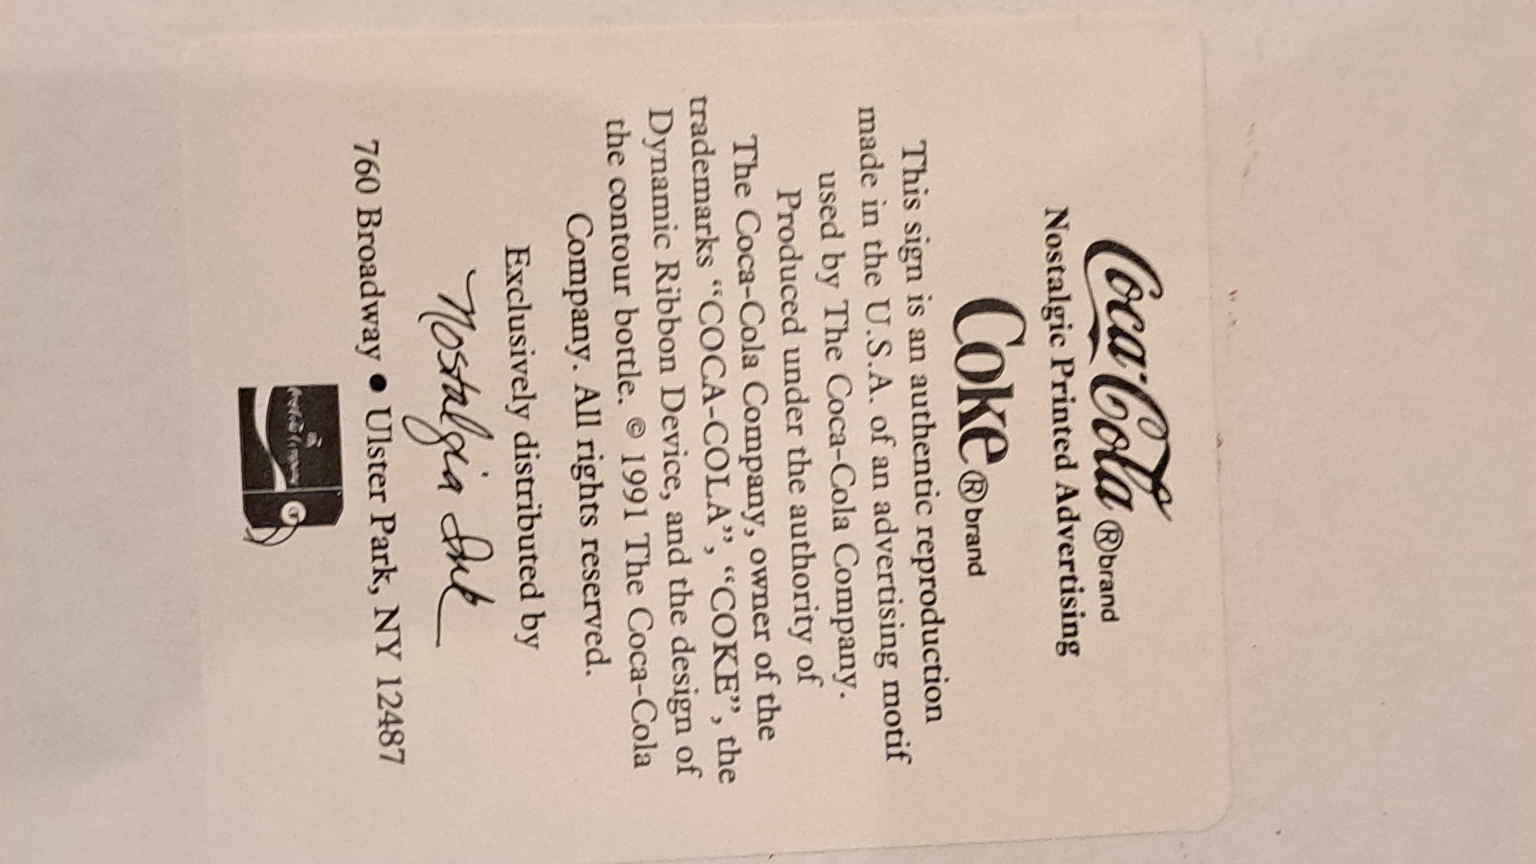 Coca-Cola ® brand
Nostalgic Printed Advertising
Coke ® brand
This sign is an authentic reproduction
made in the U.S.A. of an advertising motif
used by The Coca-Cola Company.
Produced under the authority of
The Coca-Cola Company, owner of the
trademarks “COCA-COLA”, “COKE”, the
Dynamic Ribbon Device, and the design of
the contour bottle. © 1991 The Coca-Cola
Company. All rights reserved.
Exclusively distributed by
Nostalgia Ink
760 Broadway ● Ulster Park, NY 12487